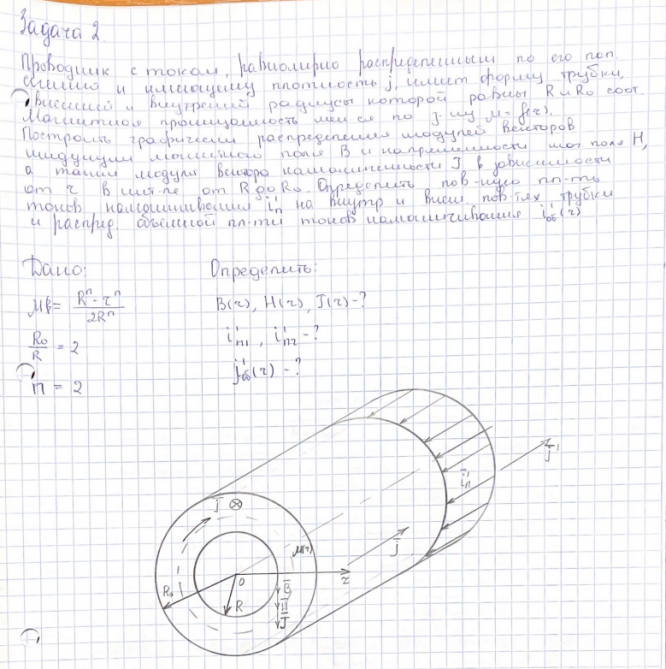 Задача 2.
Проводник с током, равномерно распределенным по его поп.
сечению и имеющему плотность j, имеет форму трубки,
внешний и внутрений радиусы которой равны R и R₀ соот.
Магнитная проницаемость мен-ся по з-му μ = f(r).
Построить графически распределения модулей векторов
индукции магнитного поля B и напряженности маг поля H,
а также модуля вектора намагниченности J в зависимости
от r в инт-ле от R до R₀. Определить пов-ную пл-ть
токов намагничивания i'п на внутр и внеш. пов-тях трубки
и распред. объемной пл-ти токов намагничивания i'об(r)
Дано: Определить:
μ = (Rⁿ - rⁿ) / 2Rⁿ B(r), H(r), J(r) - ?
R₀/R = 2 i'п1, i'п2 - ?
n = 2 j'об(r) - ?
j'
i'п
J
μ(r)
j
O
r
R₀
R
B
H
J